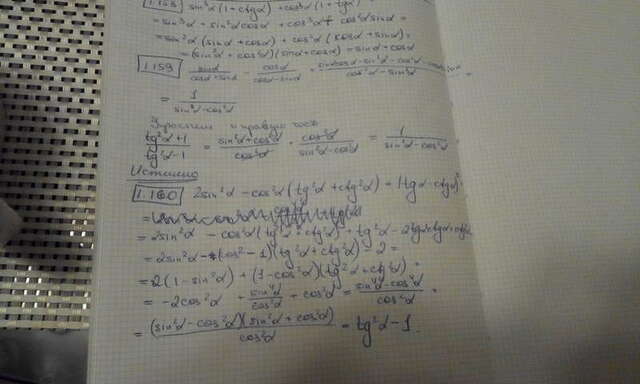 1.158 sin³α(1+ctgα)+cos³α(1+tgα)=
=sin³α + sin²α cosα + cos³α + cos²α sinα =
=sin²α(sinα+cosα) + cos²α(cosα+sinα)=
=(sin²α+cos²α)(sinα+cosα)=sinα+cosα
1.159 sinα/(cosα+sinα) - cosα/(cosα-sinα) = (sinαcosα-sin²α-cos²α-cosαsinα)/(cos²α-sin²α) =
= 1/(sin²α-cos²α)
Упростим правую часть
(tg²α+1)/(tg²α-1) = (sin²α+cos²α)/cos²α · cos²α/(sin²α-cos²α) = 1/(sin²α-cos²α).
Истинно
1.160 2sin²α - cos²α(tg²α+ctg²α)+(tgα-ctgα)²
= 2sin²α - cos²α(tg²α+ctg²α)+tg²α-2tgαctgα+ctg²α
= 2sin²α-(cos²-1)(tg²α+ctg²α)-2=
=-2(1-sin²α)+(1-cos²α)(tg²α+ctg²α)=
= -2cos²α + sin⁴α/cos²α + cos²α = (sin⁴α-cos⁴α)/cos²α =
= (sin²α-cos²α)(sin²α+cos²α)/cos²α = tg²α-1.